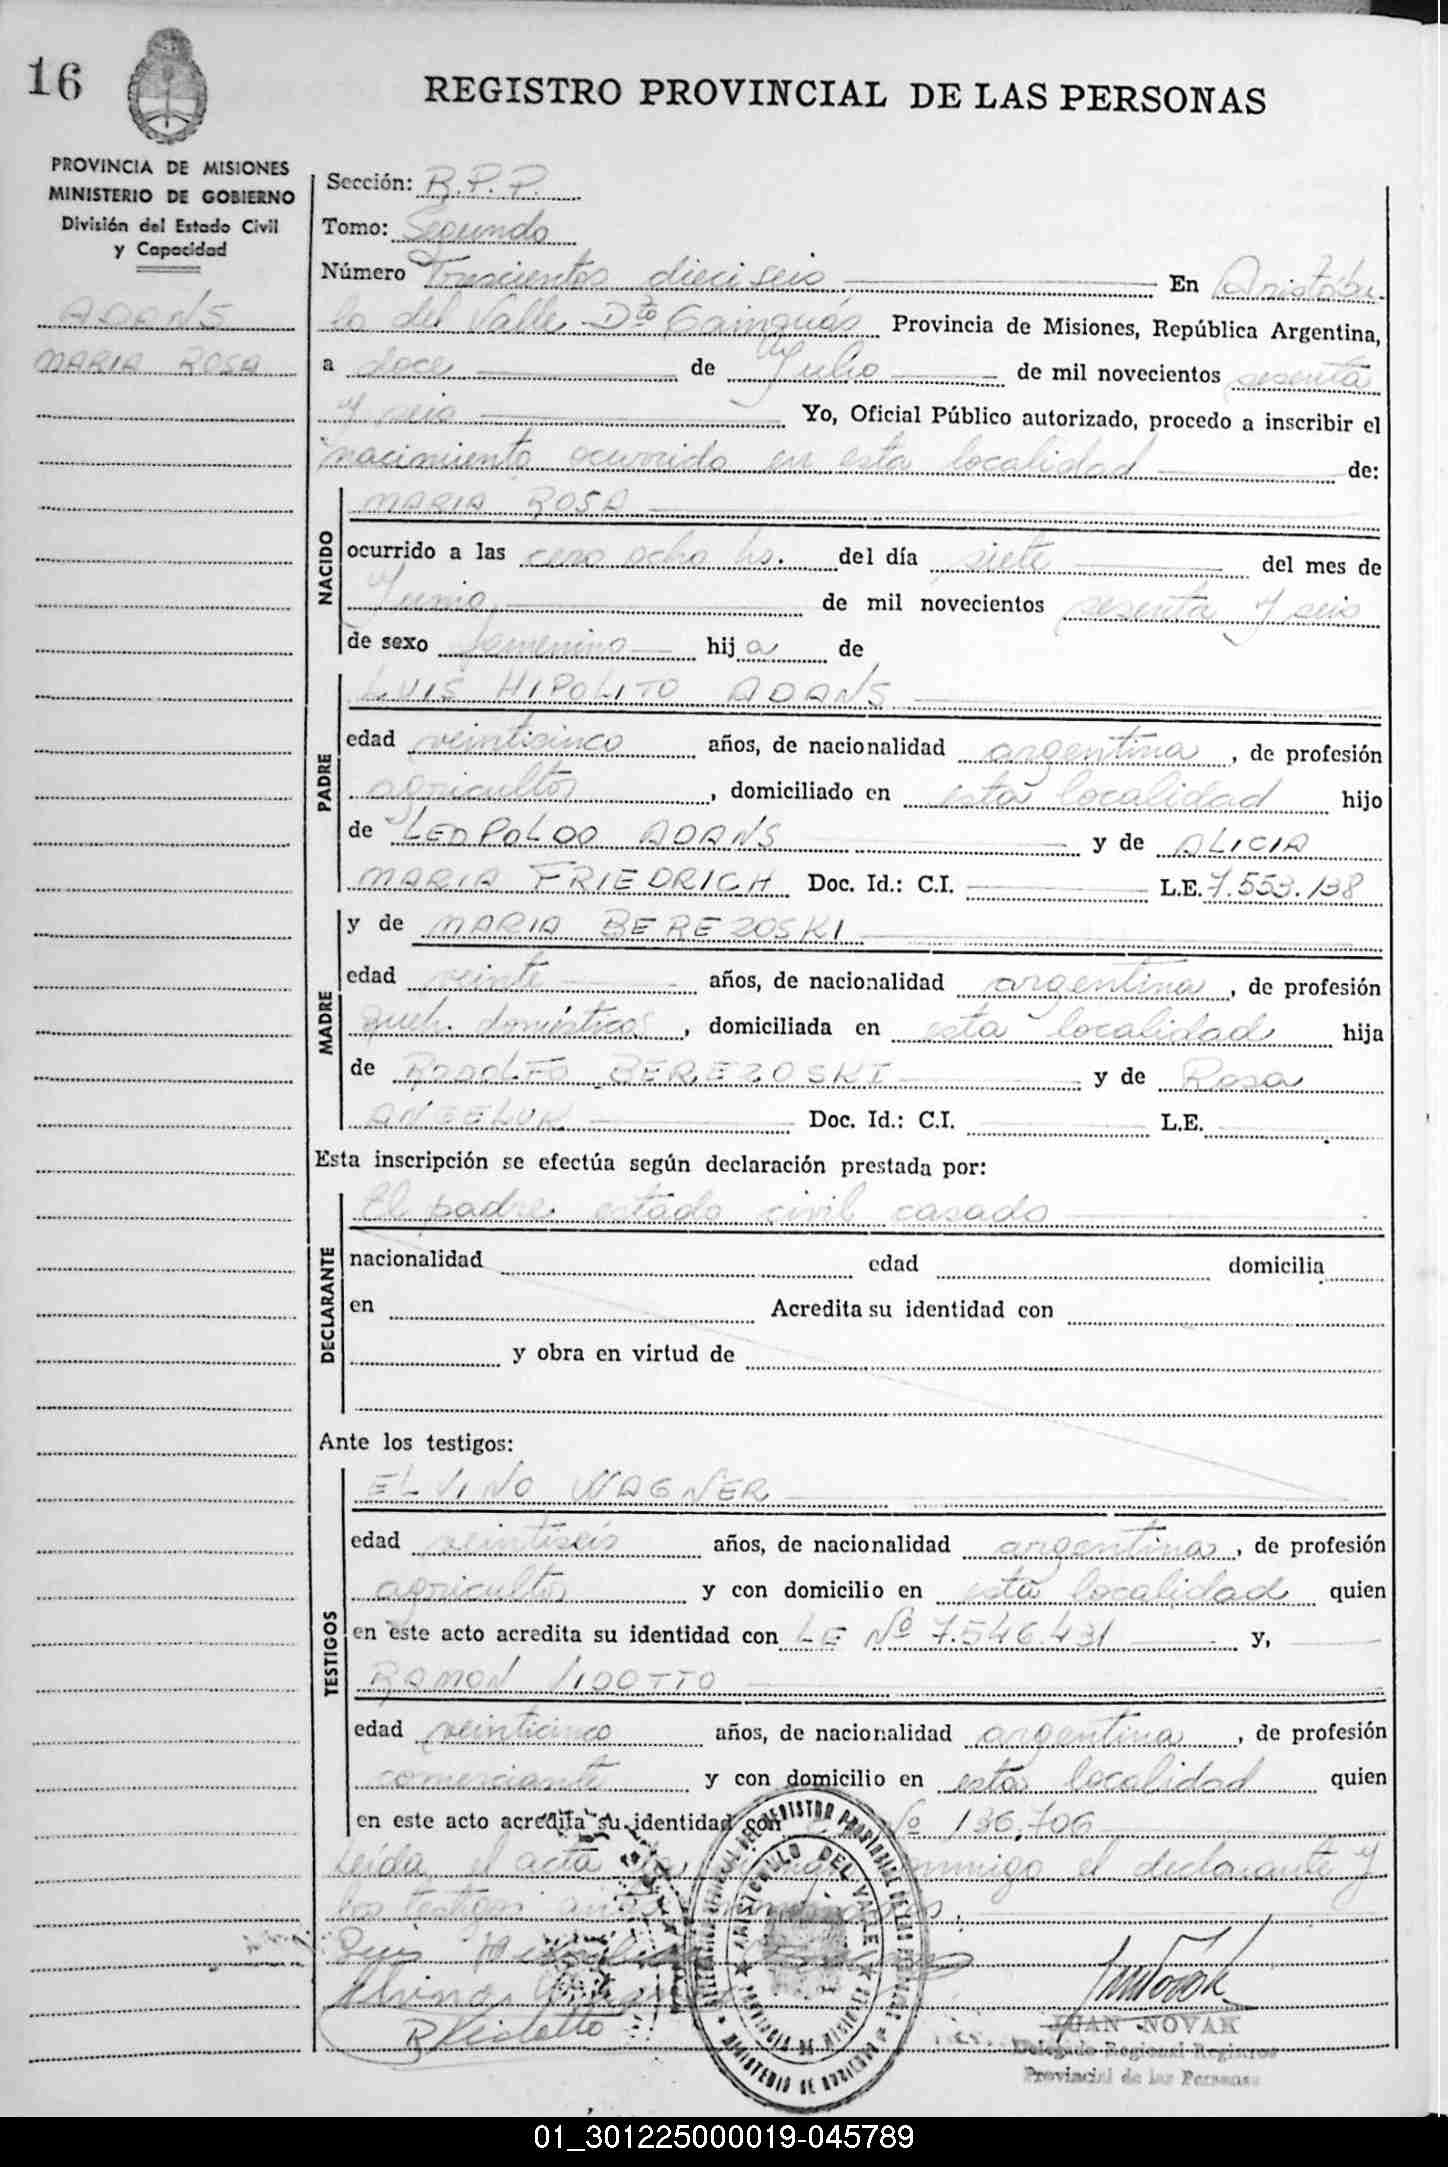 16
REGISTRO PROVINCIAL DE LAS PERSONAS
PROVINCIA DE MISIONES
MINISTERIO DE GOBIERNO
División del Estado Civil
y Capacidad
ADANS
MARIA ROSA
Sección: R.P.P.
Tomo: Segundo
Número Trescientos dieciseis En Aristobu
lo del Valle Dto Cainguás Provincia de Misiones, República Argentina,
a doce de Julio de mil novecientos sesenta
y seis Yo, Oficial Público autorizado, procedo a inscribir el
nacimiento ocurrido en esta localidad de:
NACIDO
MARIA ROSA
ocurrido a las cero ocho hs. del día siete del mes de
Junio de mil novecientos sesenta y seis
de sexo femenino hija de
PADRE
LUIS HIPOLITO ADANS
edad veinticinco años, de nacionalidad argentina, de profesión
agricultor, domiciliado en esta localidad hijo
de LEOPOLDO ADANS y de ALICIA
MARIA FRIEDRICH Doc. Id.: C.I. L.E. 7.553.138
MADRE
y de MARIA BEREZOSKI
edad veinte años, de nacionalidad argentina, de profesión
queh. domésticos, domiciliada en esta localidad hija
de RODOLFO BEREZOSKI y de Rosa
ANGELUK Doc. Id.: C.I. L.E.
Esta inscripción se efectúa según declaración prestada por:
DECLARANTE
El padre estado civil casado
nacionalidad edad domicilia
en Acredita su identidad con
y obra en virtud de
Ante los testigos:
TESTIGOS
ELVINO WAGNER
edad veintiseis años, de nacionalidad argentina, de profesión
agricultor y con domicilio en esta localidad quien
en este acto acredita su identidad con LE Nº 7.546.431 y,
RAMON VIDOTTO
edad veinticinco años, de nacionalidad argentina, de profesión
comerciante y con domicilio en esta localidad quien
en este acto acredita su identidad con Nº 136.706
Leída el acta la conmigo el declarante y
los testigos antes
Luis Hipolito
R Vidotto
ARISTOBULO DEL VALLE
PROVINCIA DE MISIONES
MINISTERIO DE GOBIERNO
JUAN NOVAK
Delegado Regional Registros
Provincial de las Personas
01_301225000019-045789